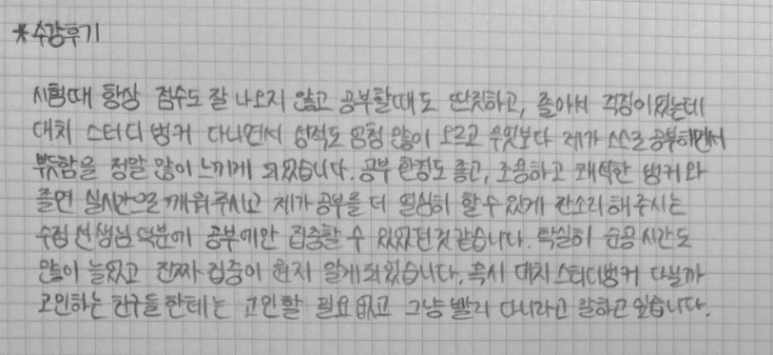 *수강후기
시험때 항상 점수도 잘 나오지 않고 공부할때도 딴짓하고, 졸아서 걱정이었는데
대치 스터디벙커 다니면서 성적도 엄청 많이 오르고 무엇보다 제가 스스로 공부하면서
뿌듯함을 정말 많이 느끼게 되었습니다. 공부 환경도 좋고, 조용하고 쾌적한 벙커와
졸면 실시간으로 깨워주시고 제가 공부를 더 열심히 할 수 있게 잔소리해주시는
수정 선생님 덕분에 공부에만 집중할 수 있었던것같습니다. 확실히 순공시간도
많이 늘었고 진짜 집중이 뭔지 알게되었습니다. 혹시 대치 스터디벙커 다닐까
고민하는 친구들한테는 고민할 필요없고 그냥 빨리 다니라고 말하고 싶습니다.